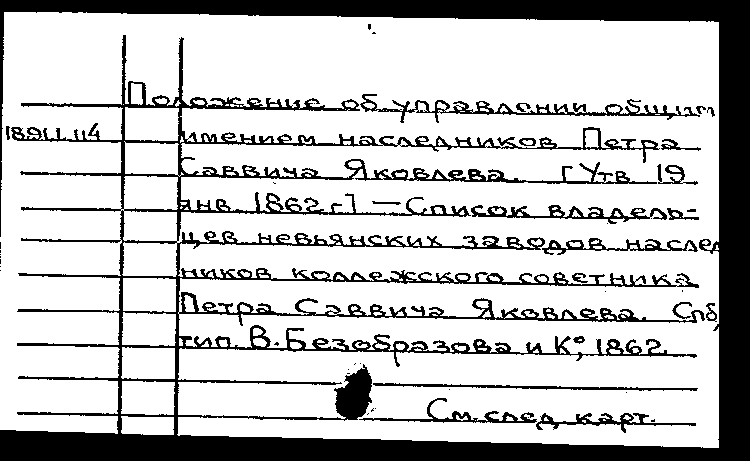 Положение об управлении общим
18.91.1.114 имением наследников Петра
Саввича Яковлева. [Утв 19
янв. 1862 г.] — Список владель-
цев невьянских заводов наслед
ников коллежского советника
Петра Саввича Яковлева. Спб,
тип. В. Безобразова и К°, 1862.
См. след. карт.